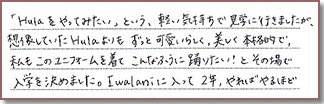 「Hulaをやってみたい」という、軽い気持ちで見学に行きましたが、
想像していたHulaよりもずっと可愛いらしく、美しく本格的で、
私もこのユニフォームを着てこんなふうに踊りたい！とその場で
入学を決めました。Iwalaniに入って2年、やればやるほど